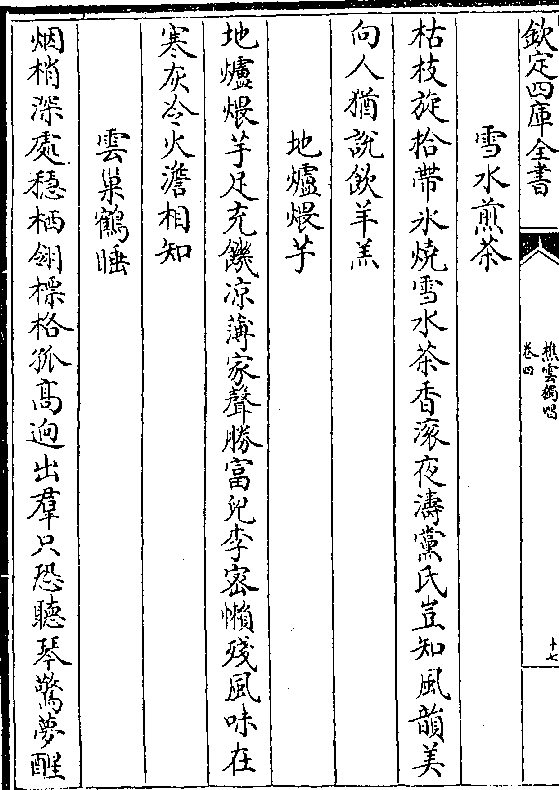 欽定四庫全書
樵雲獨唱
卷四
十七
雪水煎茶
枯枝旋拾帶氷燒雪水茶香滚夜濤黨氏豈知風韻美
向人猶說飲羊羔
地爐煨芋
地爐煨芋足充饑凉薄家聲勝富兒李宻懶殘風味在
寒灰冷火澹相知
雲巢鶴睡
烟梢深處穏栖翎標格孤高逈出羣只恐聽琴驚夢醒